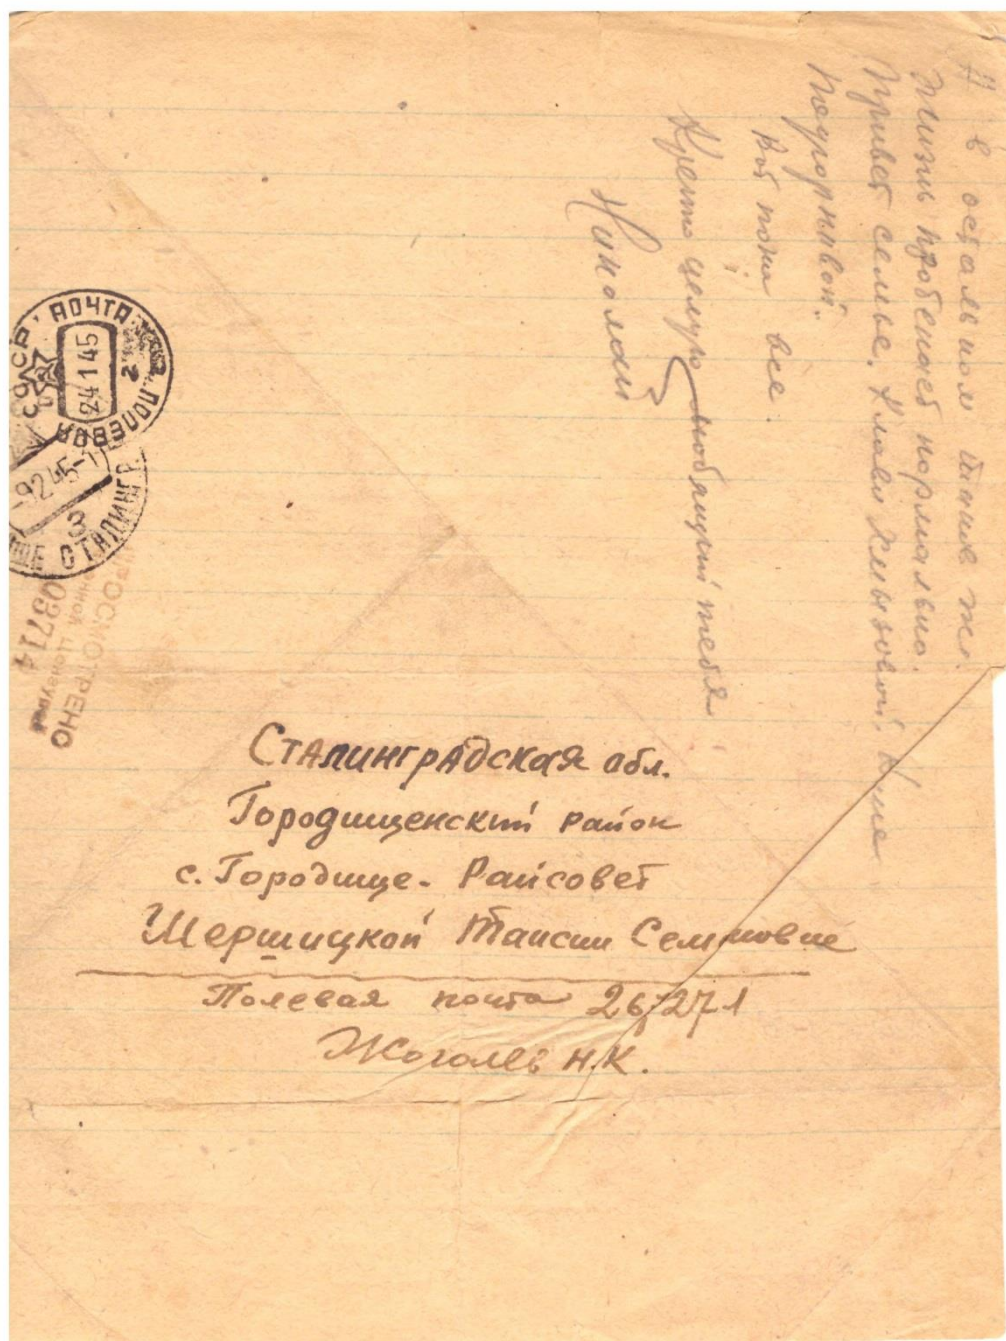 А в остальном также же.
Жизнь протекает нормально.
Привет семье, Клаве Хмызовой, Кате
Подгорновой.
Вот пока все.
Крепко целую любящий тебя
Николай
СССР ПОЧТА
24 1 45
ПОЛЕВАЯ
-9 2 45-1
3
СТАЛИНГР.
ПРОСМОТРЕНО
Военной Цензурой
03714
Сталинградская обл.
Городищенский район
с. Городище. Райсовет
Шершицкой Таисии Семеновне
Полевая почта 26271
Жоголев Н.К.